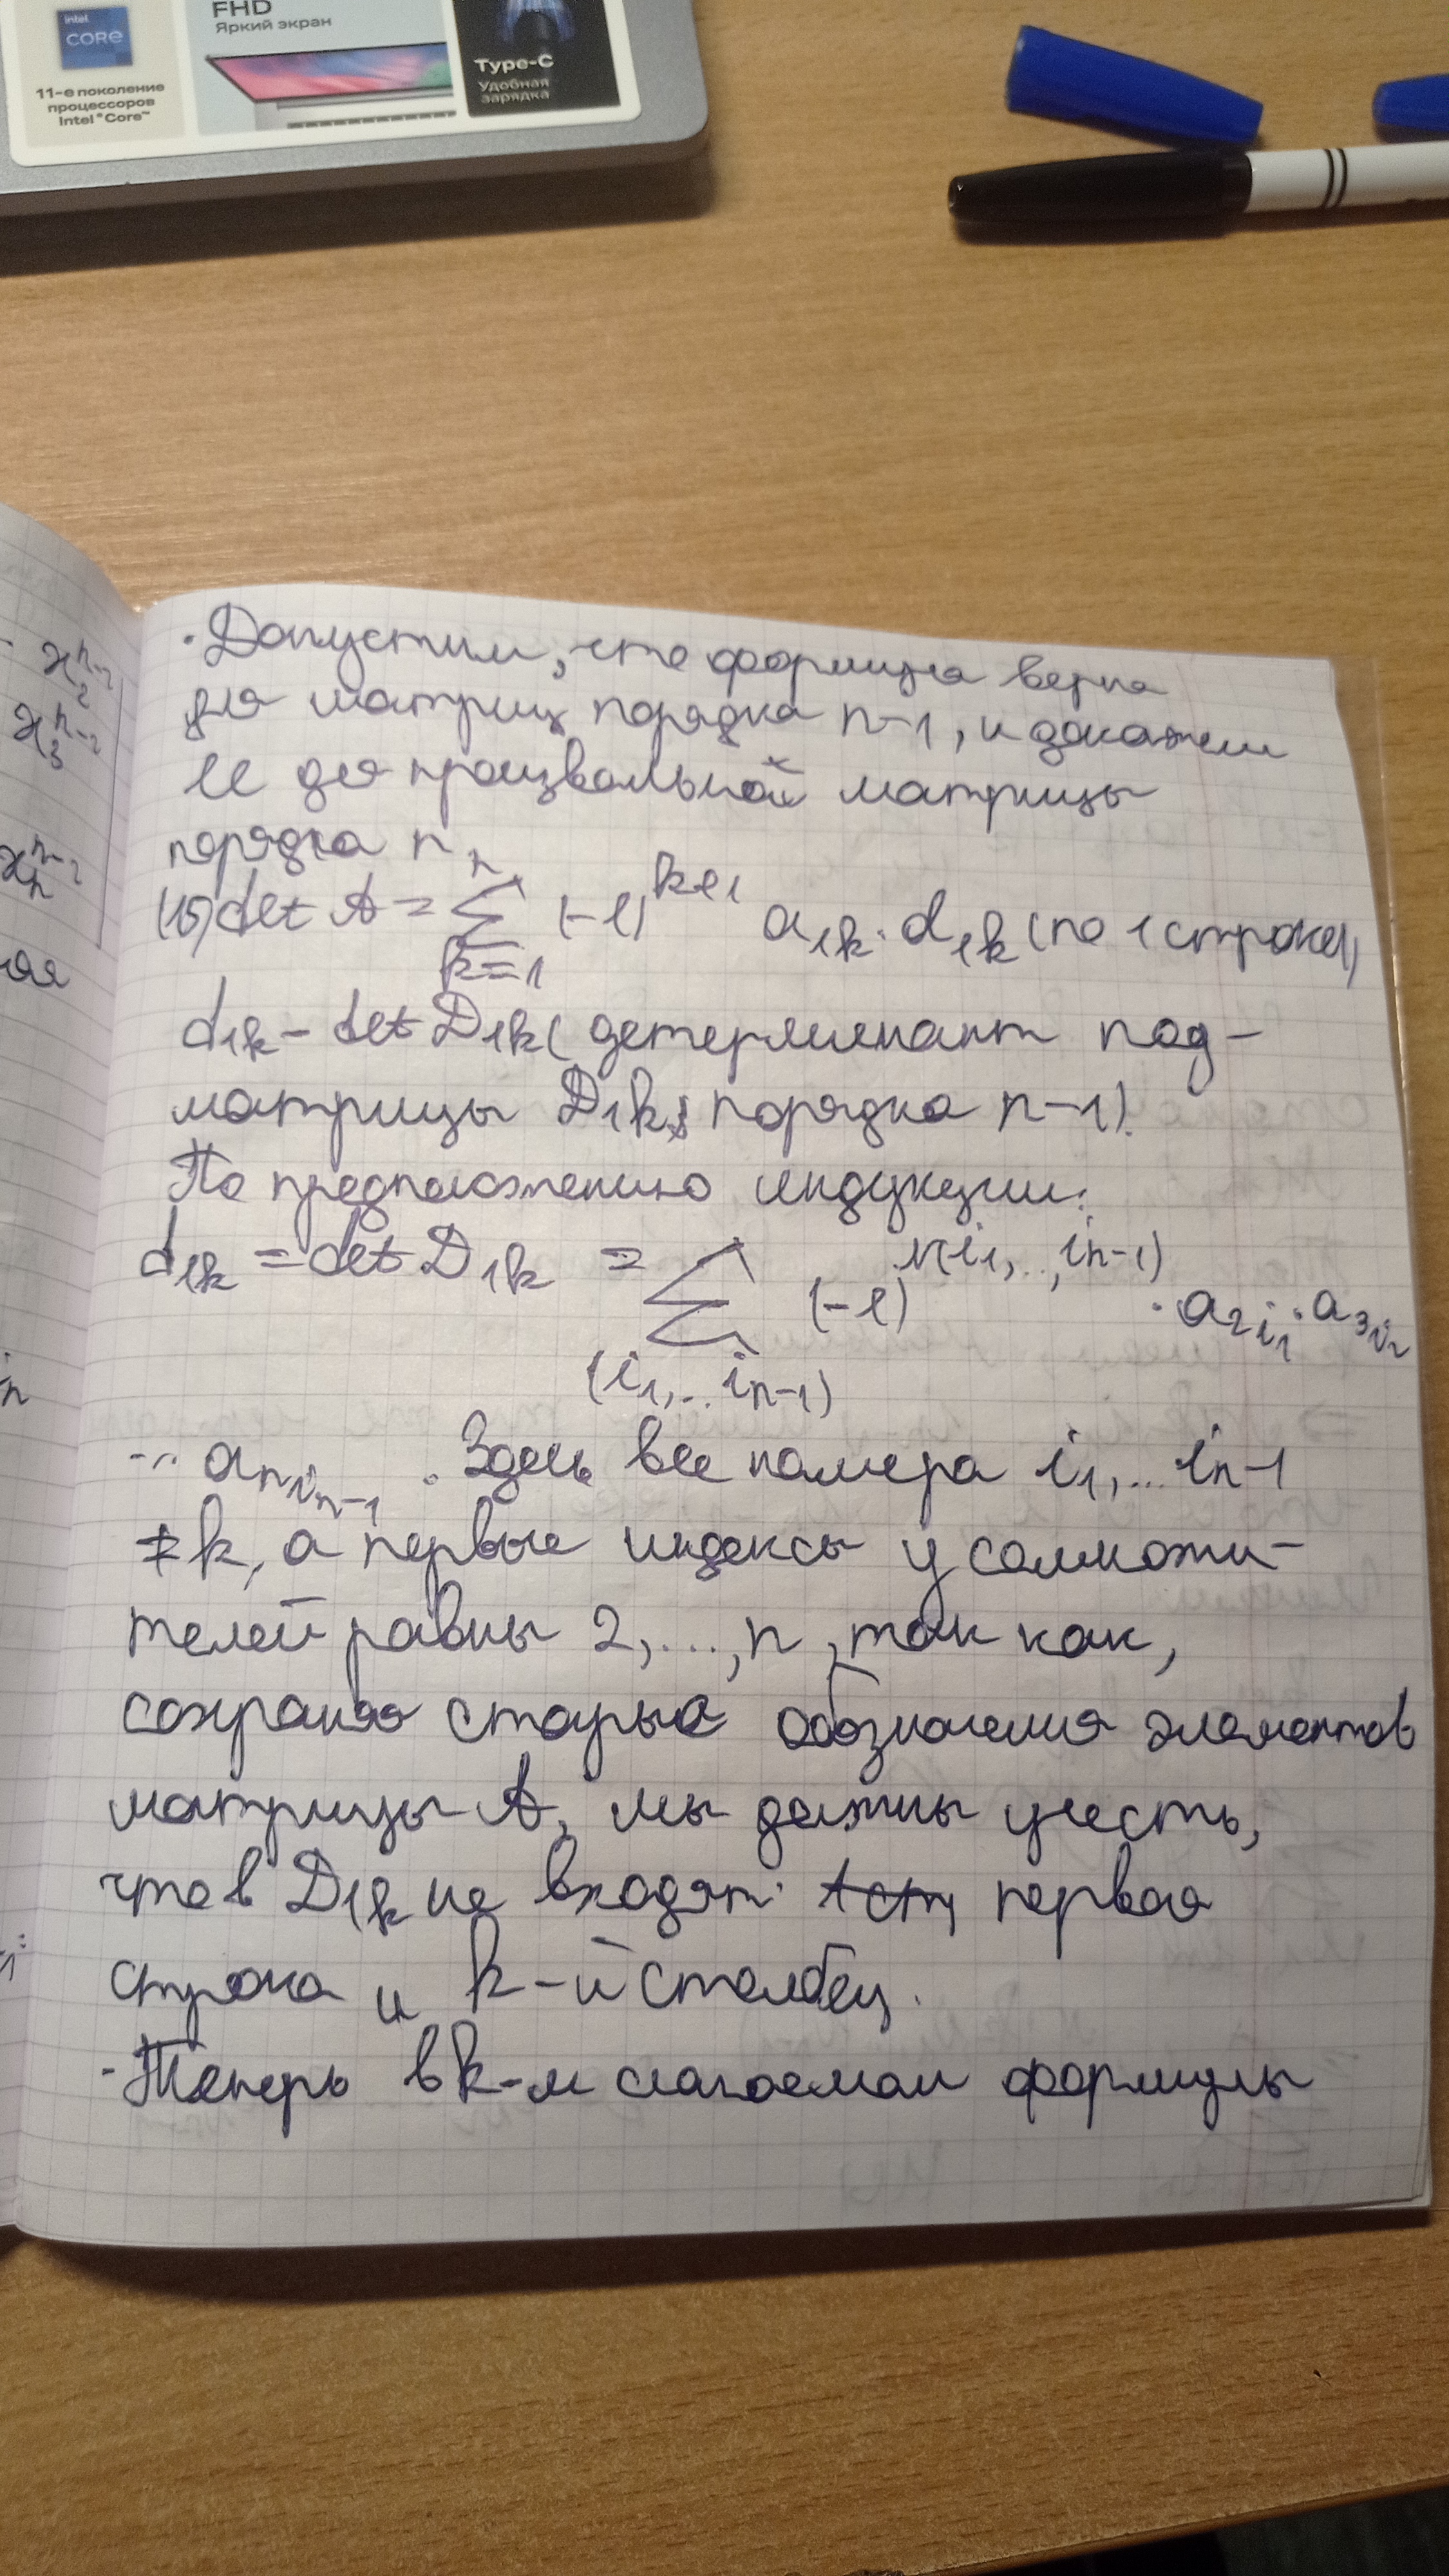 intel
CORE
11-е поколение
процессоров
Intel® Core™
FHD
Яркий экран
Type-C
Удобная
зарядка
x₂ⁿ⁻²
x₃ⁿ⁻²
xₙⁿ⁻²
· Допустим, что формула верна
для матриц порядка n-1, и докажем
ее для произвольной матрицы
порядка n
(15) det A = ∑ₖ₌₁ⁿ (-1)ᵏ⁺¹ a₁ₖ · d₁ₖ (по 1 строке)
d₁ₖ - det D₁ₖ (детерминант под-
матрицы D₁ₖ, порядка n-1).
По предположению индукции:
d₁ₖ = det D₁ₖ = ∑_(i₁,...iₙ₋₁) (-1)^N(i₁,...,iₙ₋₁) · a_2i₁ · a_3i₂
... a_niₙ₋₁. Здесь все номера i₁,... iₙ₋₁
≠ k, а первые индексы у сомножи-
телей равны 2,...,n, так как,
сохраняя старые обозначения элементов
матрицы A, мы должны учесть,
что в D₁ₖ не входят первая
строка и k-й столбец.
- Теперь в k-м слагаемом формулы